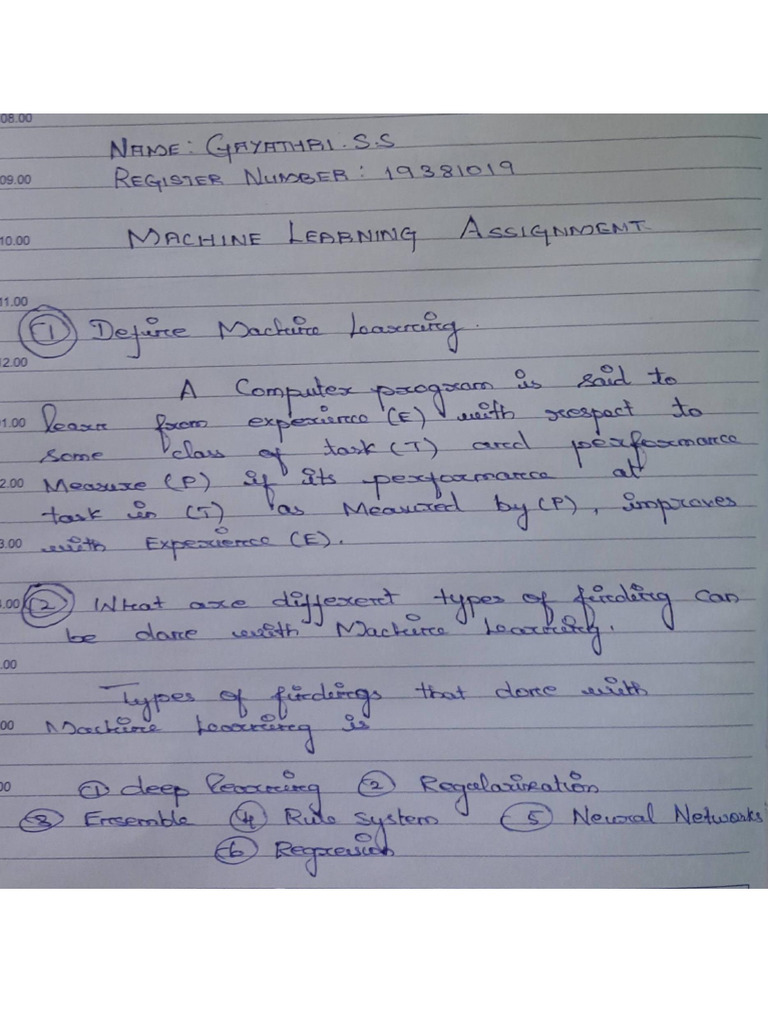 08.00
NAME: GAYATHRI.S.S
09.00
REGISTER NUMBER: 19381019
10.00
MACHINE LEARNING ASSIGNMENT.
11.00
(1) Define Machine Learning.
12.00
A Computer program is said to
01.00 learn from experience (E) with respect to
some class of task (T) and performance
2.00 Measure (P) if its performance at
task in (T) as Measured by (P), improves
3.00 with Experience (E).
4.00 (2) What are different types of finding can
be done with Machine Learning.
.00
Types of findings that done with
00 Machine Learning is
00 (1) deep learning (2) Regularization
(3) Ensemble (4) Rule System (5) Neural Networks
(6) Regression